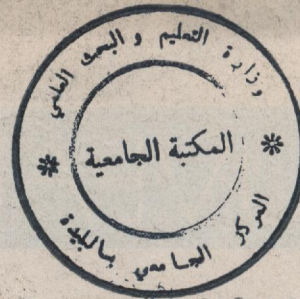 وزارة التعليم و البحث العلمي
* المكتبة الجامعية *
المركز الجامعي بالبليدة